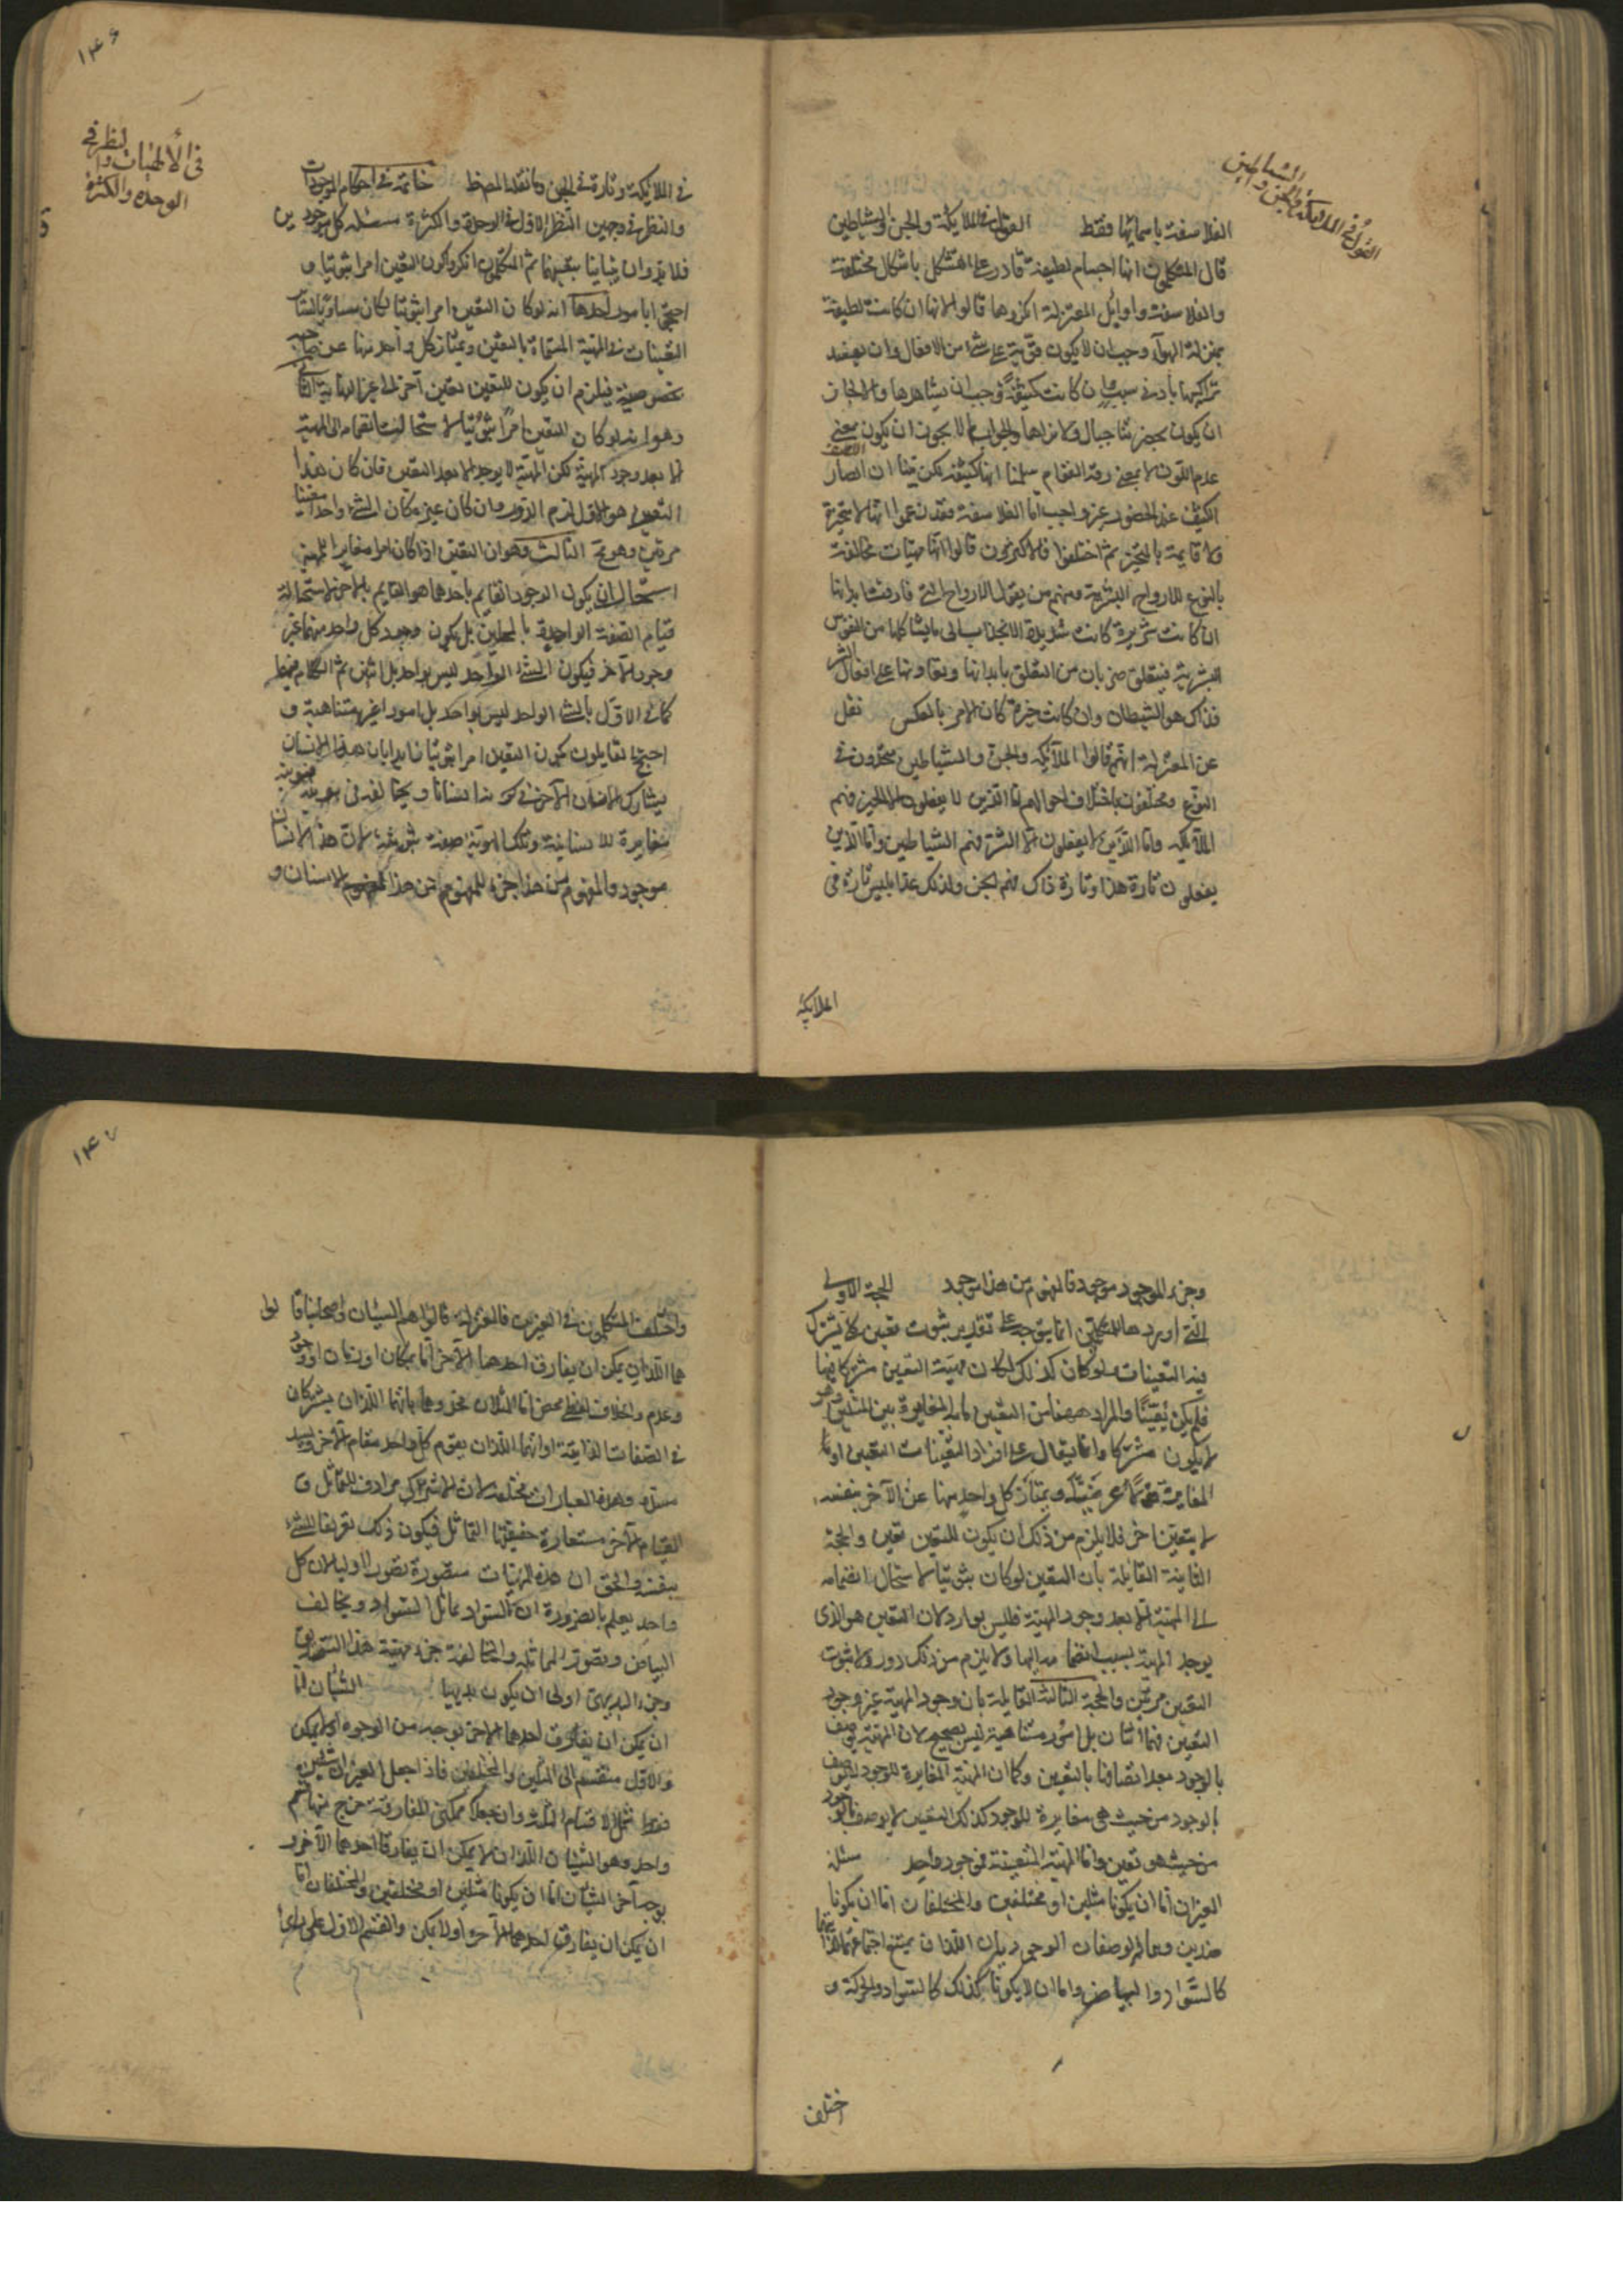 القول في الملائكة والجن والشياطين
الفلاسفة باسمائها فقط القول في الملايكة والجن والشياطين
قال المتكلمون انها اجسام لطيفة قادرة على التشكل باشكال مختلفة
والفلاسفة واوايل المعتزلة انكروها قالوا لانها ان كانت لطيفة
بمنزلة الهواء وجب ان لا يكون قوية على شئ من الافعال وان يفسد
تراكيبها بادنى سبب وان كانت كثيفة وجب ان نشاهدها والا لجاز
ان يكون بحضرتنا جبال ولا نراها والجواب لم لا يجوز ان يكون بمعنى
عدم اللون لا بمعنى رقة القوام سلمنا انها كثيفة لكن بينا ان ابصار
الكثيف عند الحضور غير واجب اما الفلاسفة فقد زعموا انها لا متحيزة
ولا قايمة بالمتحيز ثم اختلفوا فالاكثرون قالوا انها مهيات مخالفة
بالنوع للارواح البشرية ومنهم من يقول الارواح التي فارقت ابدانها
ان كانت شريرة كانت شديدة الانجذاب الى ما يشاكلها من النفوس
البشرية فيتعلق ضربا من التعلق بابدانها ويعاونها على افعال الشر
فذاك هو الشيطان وان كانت خيرة كان الامر بالعكس نقل
عن المعتزلة انهم قالوا الملايكة والجن والشياطين متحدون في
النوع ومختلفون باختلاف افعالهم اما الذين لا يفعلون الا الخير فهم
الملايكة واما الذين لا يفعلون الا الشر فهم الشياطين واما الذين
يفعلون تارة هذا وتارة ذاك فهم الجن ولذلك عد ابليس تارة في
الملايكة
١٤٦
في الألهيات والنظر في
الوحدة والكثرة
في الملايكة وتارة في الجن وما نقله المص خاتمة في احكام الموجودات
والنظر في وجهين النظر الاول في الوحدة والكثرة مسئلة كل موجودين
فلا بد وان يتباينا بتعينهما ثم المتكلمون انكروا كون التعين امرا ثبوتيا و
احتجوا بامور احدها انه لو كان التعين امرا ثبوتيا لكان مساويا لساير
التعينات في المهية المسماة بالتعين ويمتاز كل واحد منها عن صاحبه
بخصوصية فيلزم ان يكون للتعين تعين آخر الى غير النهاية الثاني
وهو انه لو كان التعين امرا ثبوتيا لاستحالت انضمامه الى المهية
الا بعد وجود المهية لكن المهية لا يوجد الا بعد التعين فان كان هذا
التعين هو الاول لزم الدور وان كان غيره كان الشئ الواحد متعينا
مرتين وهو مح الثالث وهو ان التعين اذا كان امرا مغايرا للمهية
استحال ان يكون الوجود القايم باحدهما هو القايم بالآخر لاستحالة
قيام الصفة الواحدة بالمحلين بل يكون وجود كل واحد منهما غير
وجود الآخر فيكون الشئ الواحد ليس بواحد بل اثنين ثم الكلام فيهما
كما في الاول فالشئ الواحد ليس بواحد بل امورا غير متناهية و
احتج القايلون بكون التعين امرا ثبوتيا بان هذا الانسان
يشارك الانسان الآخر في كونه انسانا ويخالفه في هويته
مغايرة للانسانية وتلك الهوية صفة ثبوتية لان هذا الانسان
موجود والمفهوم من هذا جزء للمفهوم من هذا الانسان و
وجزء الموجود موجود فالمفهوم من هذا موجود الحجة الاولى
التي اوردها المتكلمين انما يتوجه على تقدير ثبوت معين كلي يشترك
فيه التعينات ولو كان كذلك لكان مهية التعين مشتركا فيها
فلم يكن تعينا والمراد ههنا من التعين ما به المغايرة بين المثلين وهو
لا يكون مشتركا وانما يقال على افراد التعينات التعين او ما
المغايرة ويمتاز كل واحد منها عن الآخر بنفسه
لا بتعين آخر فلا يلزم من ذلك ان يكون للتعين تعين والحجة
الثانية القايلة بان التعين لو كان ثبوتيا لاستحال انضمامه
الى المهية الا بعد وجود المهية فليس بوارد لان التعين هو الذي
يوجد المهية بسبب انضمامه اليها ولا يلزم من ذلك دور ولا ثبوت
التعين مرتين والحجة الثالثة القايلة بان وجود المهية غير وجود
التعين فهما اثنان بل امور متناهية ليس بصحيح لان المهية يوصف
بالوجود بعد اتصافها بالتعين وكما ان المهية المغايرة للوجود لا يوصف
بالوجود من حيث هي مغايرة للوجود كذلك التعين لا يوصف بالوجود
من حيث هو تعين واما المهية المتعينة فموجود واحد مسئلة
الغيران اما ان يكونا مثلين او مختلفين والمختلفان اما ان يكونا
ضدين وهما الوصفان الوجوديان اللذان يمتنع اجتماعهما لذاتهما
كالسواد والبياض واما ان لا يكونا كذلك كالسواد والحركة و
اختلف
١٤٧
واختلف المتكلمون في الغيرين فالمعتزلة قالوا هما الشيئان واصحابنا قالوا
هما اللذان يمكن ان يفارق احدهما الآخر اما بمكان او زمان او وجود
وعدم واختلاف لفظي محض اما المثلان فحدوهما بانهما اللذان يشتركان
في الصفات الذاتية او انهما اللذان يقوم كل واحد مقام الآخر ويسد
مسده وهذه العبارات مختلة لان الاشتراك مرادف للتماثل و
القيام الآخر مستعارة حقيقتها التماثل فيكون ذلك تعريفا للشئ
بنفسه والحق ان هذه المهيات متصورة تصورا اوليا لان كل
واحد يعلم بالضرورة ان السواد يماثل السواد ويخالف
البياض وتصور المماثلة والمخالفة جزء مهية هذا التصديق
وجزء البديهي اولى ان يكون بديهيا الشيئان اما
ان يمكن ان يفارق احدهما الآخر بوجه من الوجوه او لا يمكن
والاول منقسم الى المثلين والمختلفين فاذا جعل الغيران شيئين
فقط شمل الاقسام الثلثة وان جعلا ممكني المفارقة خرج منها قسم
واحد وهو الشيئان اللذان لا يمكن ان يفارق احدهما الآخر و
بوجه آخر الشيئان اما ان يكونا مثلين او مختلفين والمختلفان اما
ان يمكن ان يفارق احدهما الآخر او لا يمكن والقسم الاول على رأي